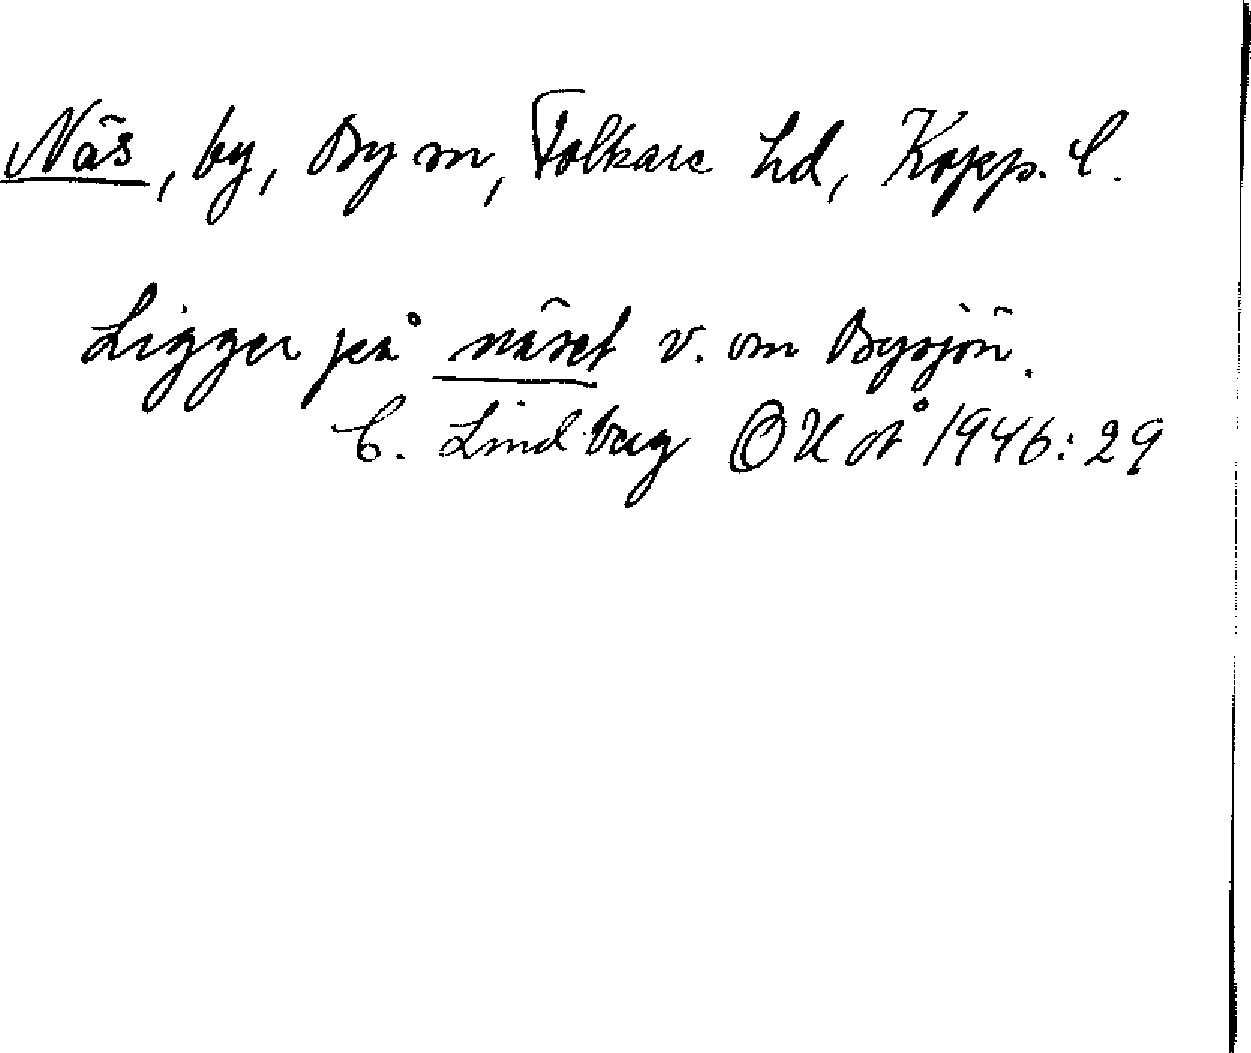 Näs, by, By sn, Folkare hd, Kopp. l.
Ligger på näset v. om Bysjön.
C. Lindberg OUÅ 1946: 29